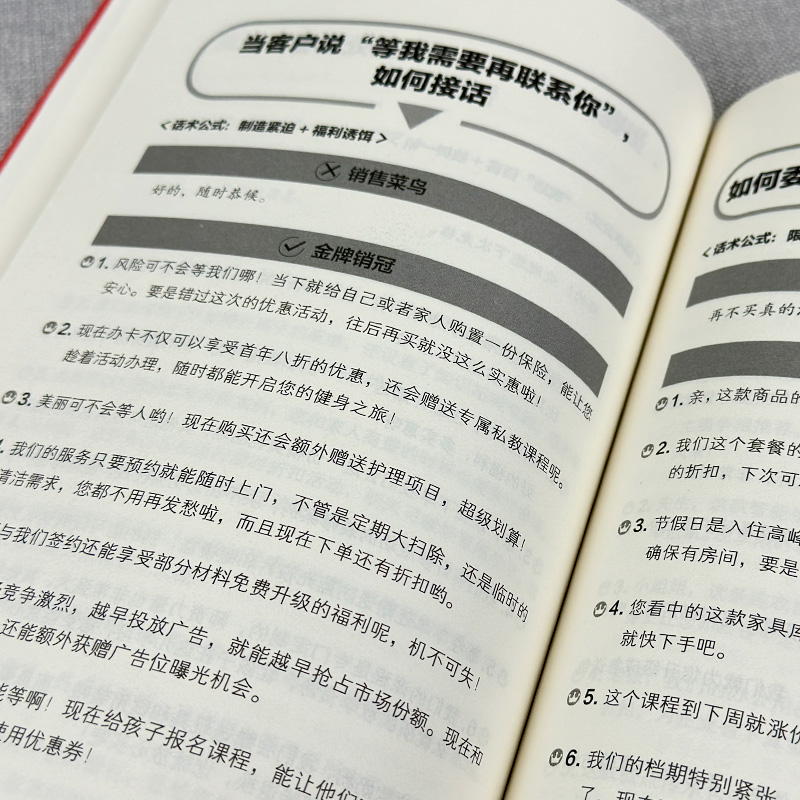 当客户说“等我需要再联系你”，
如何接话
<话术公式：制造紧迫+福利诱饵>
销售菜鸟
好的，随时恭候。
金牌销冠
1. 风险可不会等我们哪！当下就给自己或者家人购置一份保险，能让您
安心。要是错过这次的优惠活动，往后再买就没这么实惠啦！
2. 现在办卡不仅可以享受首年八折的优惠，还会赠送专属私教课程呢。
趁着活动办理，随时都能开启您的健身之旅！
3. 美丽可不会等人哟！现在购买还会额外赠送护理项目，超级划算！
我们的服务只要预约就能随时上门，不管是定期大扫除，还是临时的
清洁需求，您都不用再发愁啦，而且现在下单还有折扣哟。
与我们签约还能享受部分材料免费升级的福利呢，机不可失！
竞争激烈，越早投放广告，就能越早抢占市场份额。现在和
还能额外获赠广告位曝光机会。
等啊！现在给孩子报名课程，能让他们
使用优惠券！
如何委
<话术公式：限
再不买真的
1. 亲，这款商品的
2. 我们这个套餐的
的折扣，下次可
3. 节假日是入住高峰
确保有房间，要是
4. 您看中的这款家具库
就快下手吧。
5. 这个课程到下周就涨价
6. 我们的档期特别紧张
了，现在